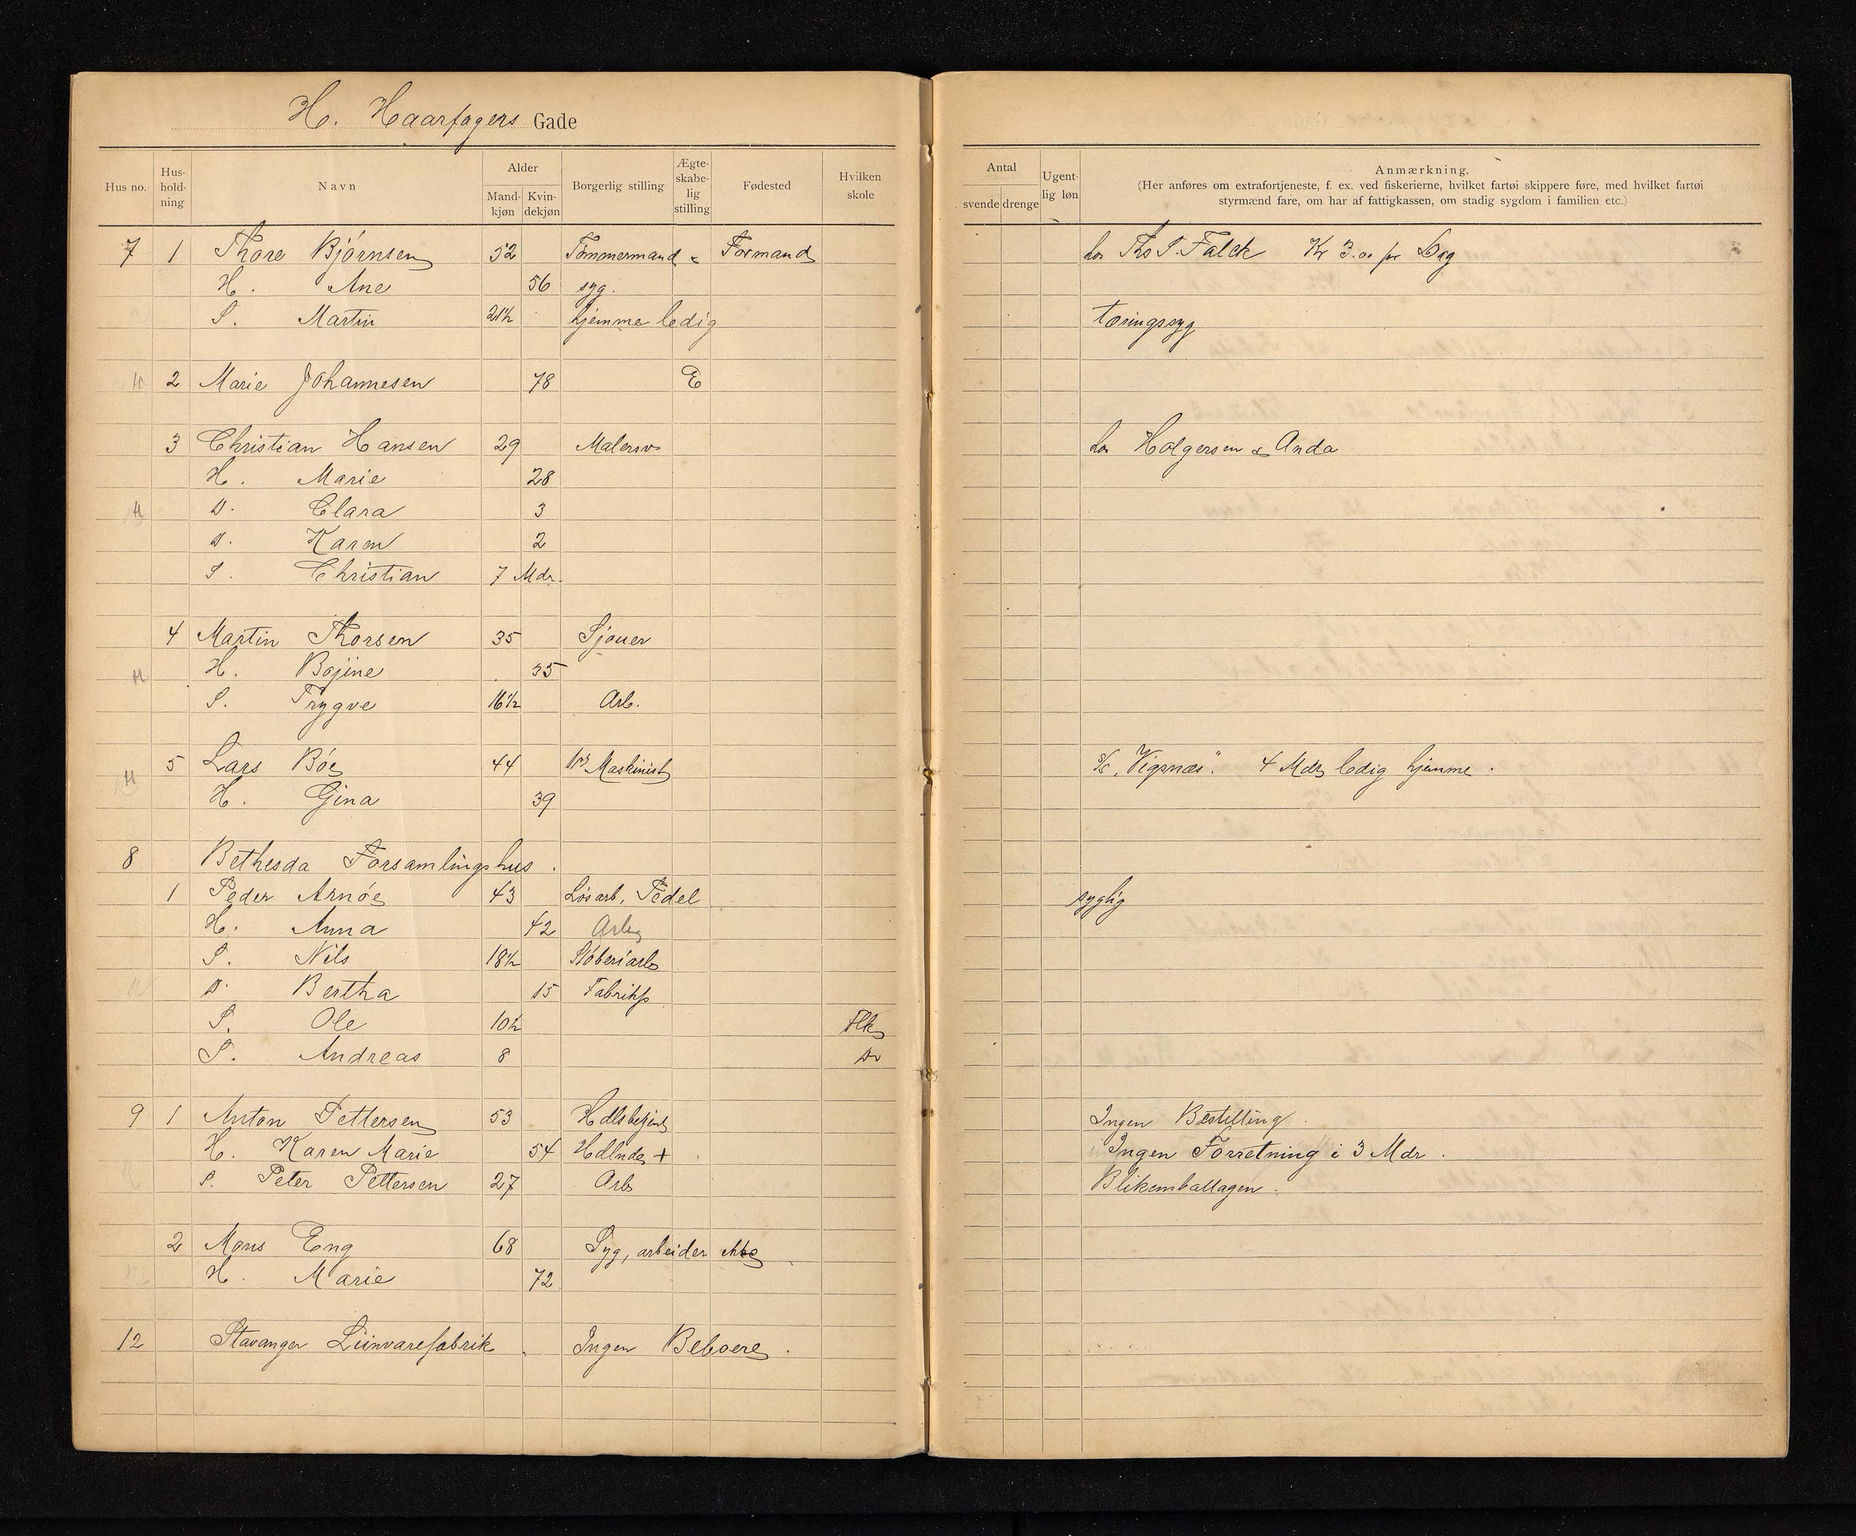 H. Haarfagers Gade
Hus no. Hus-holdning Navn Alder Mandkjøn Kvindekjøn Borgerlig stilling Ægteskabelig stilling Fødested Hvilken skole
Antal svende drenge Ugentlig løn Anmærkning.
(Her anføres om extrafortjeneste, f. ex. ved fiskerierne, hvilket fartøi skippere føre, med hvilket fartøi
styrmænd fare, om har af fattigkassen, om stadig sygdom i familien etc.)
7 1 Thore Bjørnsen 52 Tømmermand Formand hos Ths S. Falck Kr 3.00 pr Dag
H. Ane 56 syg.
S. Martin 21½ hjemme ledig tæringssyg
2 Marie Johannesen 78 E
3 Christian Hansen 29 Malersv hos Holgersen & Anda
H. Marie 28
D. Clara 3
D. Karen 2
S. Christian 7 Mdr.
4 Martin Thorsen 35 Sjouer
H. Bojine 35
S. Trygve 16½ Arb.
5 Lars Bøe 44 Maskinist S/S "Vigsnæs". 4 Mdr ledig hjemme.
H. Gina 39
8 Bethesda Forsamlingshus.
1 Peder Arnøe 43 Løsarb, Pedel syglig
H. Anna 42 Arb
S. Nils 18½ Støberiarb
D. Bertha 15 Fabrikp
S. Ole 10½ Flk
S. Andreas 8 Do
9 1 Anton Pettersen 53 Hdlsbetjent Ingen Bestilling.
H. Karen Marie 54 Hdlnde + Ingen Forretning i 3 Mdr.
S. Peter Pettersen 27 Arb Blikemballagen.
2 Mons Eng 68 Syg, arbeider ikke
H. Marie 72
12 Stavanger Linvarefabrik. Ingen Beboere.